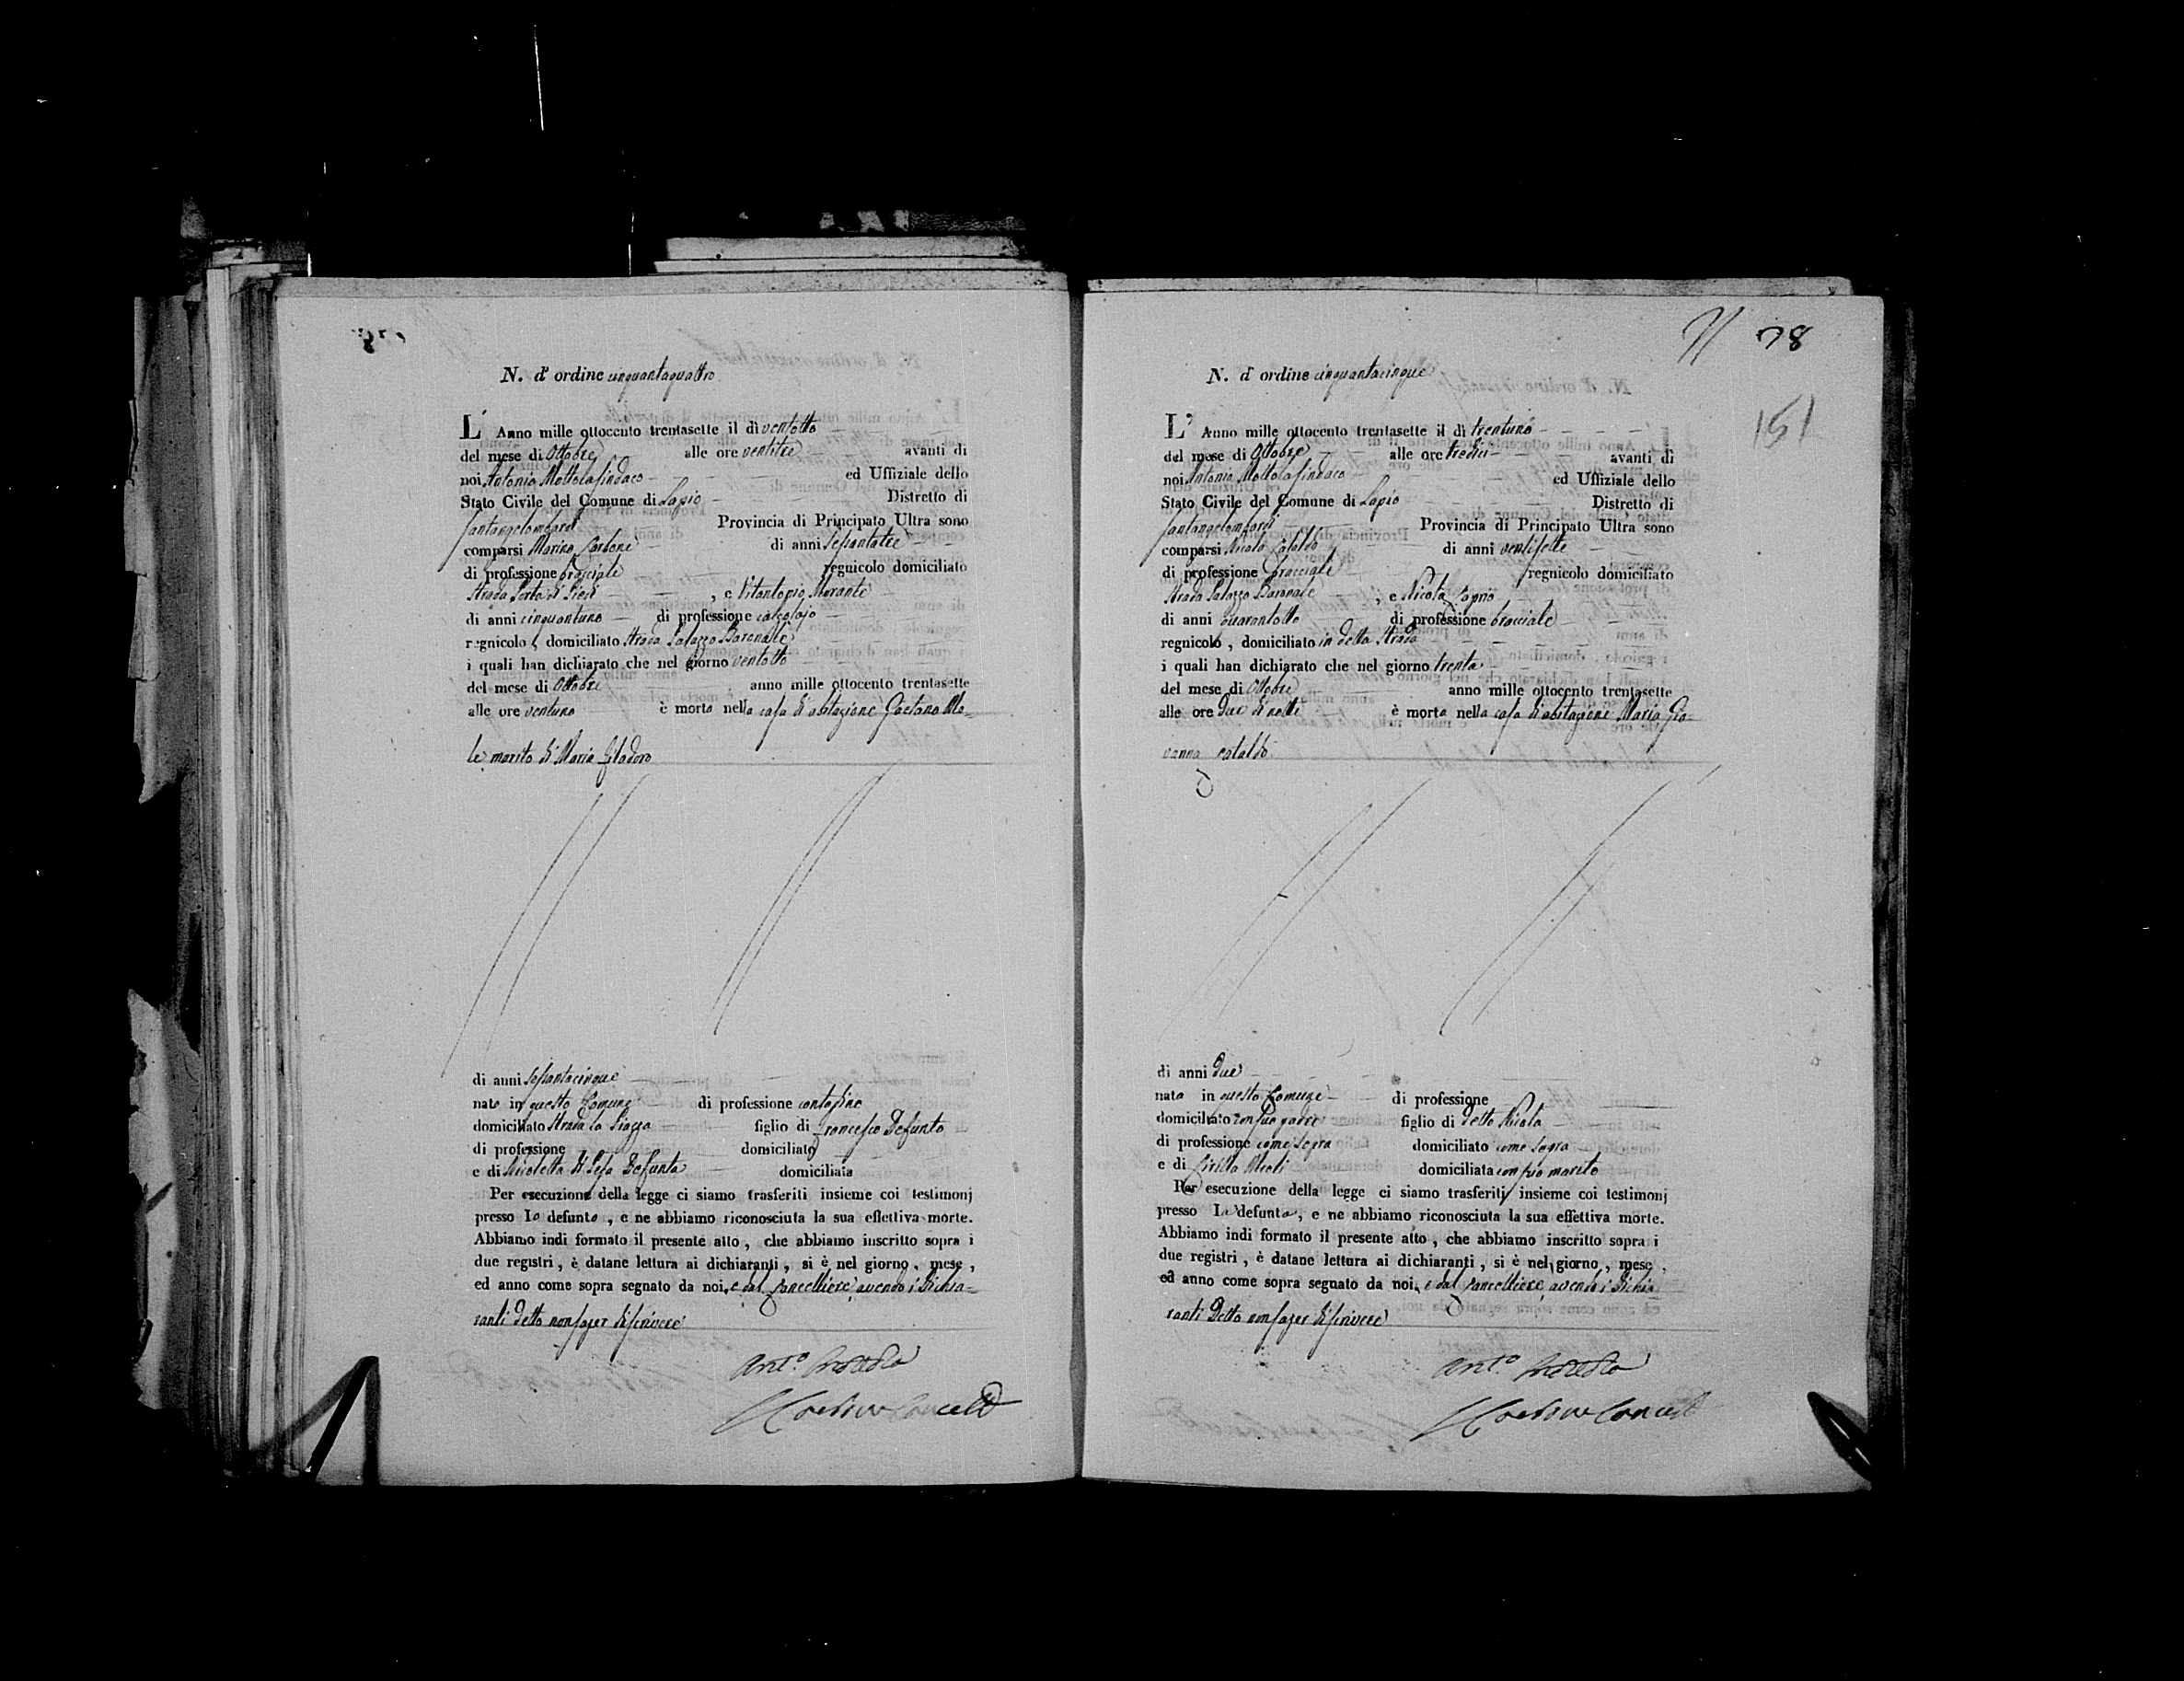 N. d' ordine cinquantaquattro
L' Anno mille ottocento trentasette il dì ventotto
del mese di Ottobre alle ore ventitre avanti di
noi Antonio Mottola Sindaco ed Uffiziale dello
Stato Civile del Comune di Lapio Distretto di
Santangelombardi Provincia di Principato Ultra sono
comparsi Marino Carbone di anni sessantatre
di professione bracciale regnicolo domiciliato
Strada Porta di Pieri , e Vitantonio Morante
di anni cinquantuno di professione calzolajo
regnicolo, domiciliato Strada Palazzo Baronale
i quali han dichiarato che nel giorno ventotto
del mese di Ottobre anno mille ottocento trentasette
alle ore ventuno è morto nella casa d'abitazione Gaetano
marito di Maria Filadoro
di anni sessantacinque
nato in questo Comune di professione contadino
domiciliato Strada la Piazza figlio di Francesco Defunto
di professione domiciliato
e di Nicoletta Defunta domiciliata
Per esecuzione della legge ci siamo trasferiti insieme coi testimonj
presso lo defunto, e ne abbiamo riconosciuta la sua effettiva morte.
Abbiamo indi formato il presente atto, che abbiamo inscritto sopra i
due registri, è datane lettura ai dichiaranti, si è nel giorno, mese,
ed anno come sopra segnato da noi, e dal Cancelliere avendo i Dichia=
ranti detto non saper di scrivere
Ant.o Mottola
Carbone Cancell
71 78
151
N. d' ordine cinquantacinque
L' Anno mille ottocento trentasette il dì trentuno
del mese di Ottobre alle ore tredici avanti di
noi Antonio Mottola Sindaco ed Uffiziale dello
Stato Civile del Comune di Lapio Distretto di
Santangelombardi Provincia di Principato Ultra sono
comparsi Nicola Cataldo di anni ventisette
di professione bracciale regnicolo domiciliato
Strada Palazzo Baronale , e Nicola Caprio
di anni quarantotto di professione bracciale
regnicolo, domiciliato in detta Strada
i quali han dichiarato che nel giorno trenta
del mese di Ottobre anno mille ottocento trentasette
alle ore due di notte è morta nella casa d'abitazione Maria Gio=
vanna Cataldo
di anni due
nata in questo Comune di professione
domiciliato con suo padre figlio di detto Nicola
di professione come sopra domiciliato come sopra
e di domiciliata con suo marito
Per esecuzione della legge ci siamo trasferiti insieme coi testimonj
presso la defunta, e ne abbiamo riconosciuta la sua effettiva morte.
Abbiamo indi formato il presente atto, che abbiamo inscritto sopra i
due registri, è datane lettura ai dichiaranti, si è nel giorno, mese,
ed anno come sopra segnato da noi, e dal Cancelliere avendo i Dichia=
ranti Detto non saper di scrivere
Ant.o Mottola
Carbone Cancell